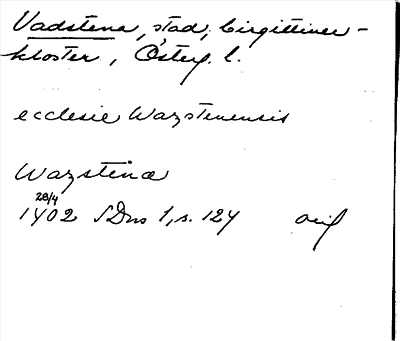 Vadstena, stad, birgittiner-
kloster, Österg. l.
ecclesie Wazstenensis
Wazstena
28/4
1402 SDns 1, s. 124 orig